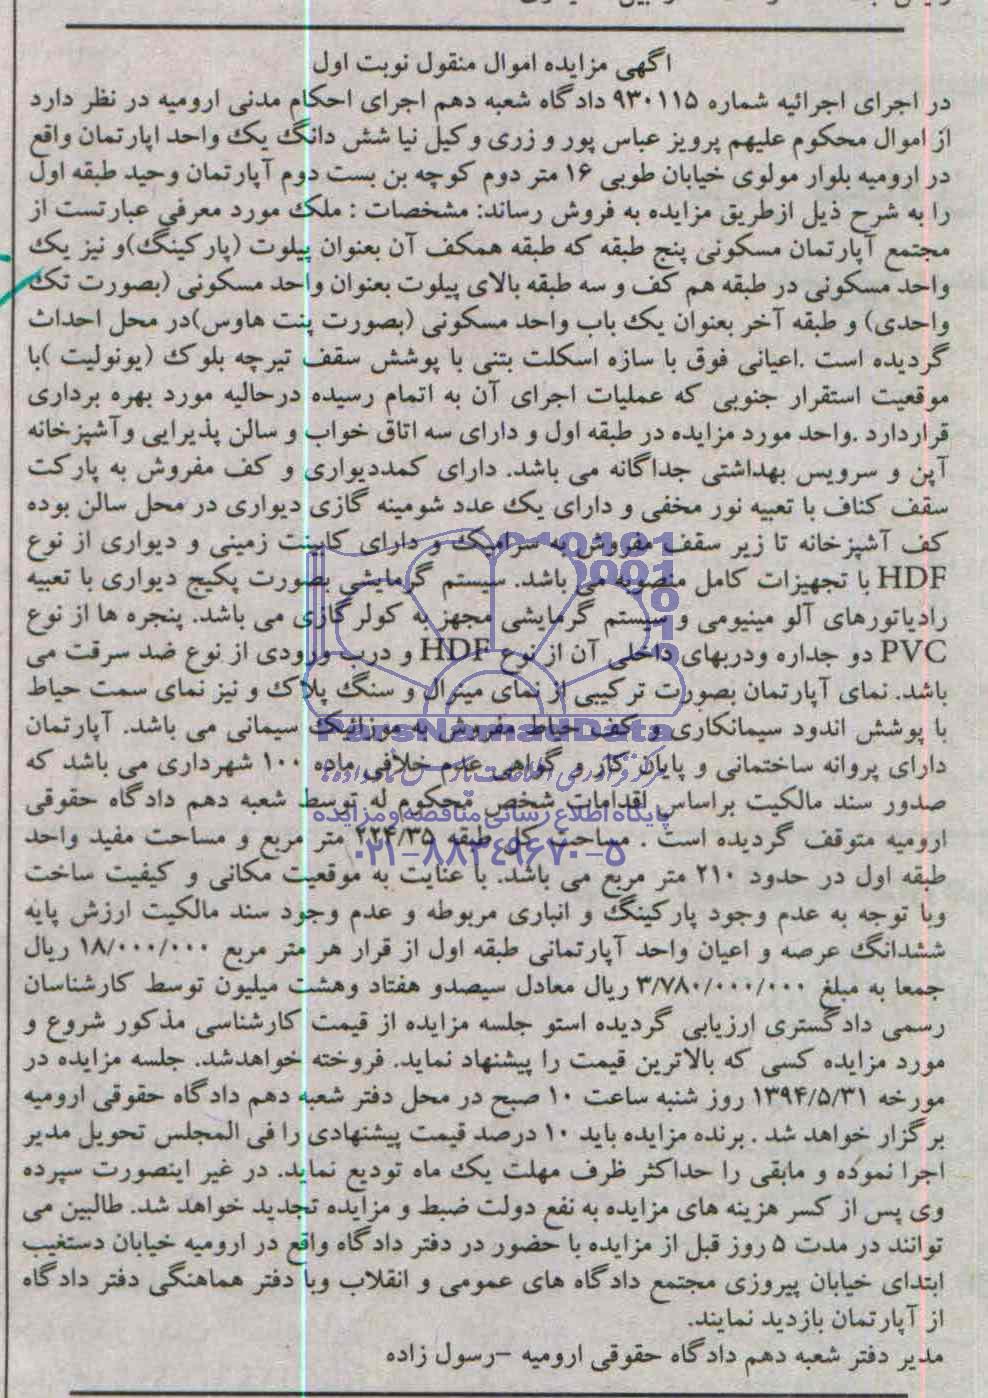 آگهی مزایده اموال منقول نوبت اول
در اجرای اجرائیه شماره ۹۳۰۱۱۵ دادگاه شعبه دهم اجرای احکام مدنی ارومیه در نظر دارد
از اموال محکوم علیهم پرویز عباس پور و زری وکیل نیا شش دانگ یک واحد اپارتمان واقع
در ارومیه بلوار مولوی خیابان طوبی ۱۶ متر دوم کوچه بن بست دوم آپارتمان وحید طبقه اول
را به شرح ذیل ازطریق مزایده به فروش رساند: مشخصات : ملک مورد معرفی عبارتست از
مجتمع آپارتمان مسکونی پنج طبقه که طبقه همکف آن بعنوان پیلوت (پارکینگ)و نیز یک
واحد مسکونی در طبقه هم کف و سه طبقه بالای پیلوت بعنوان واحد مسکونی (بصورت تک
واحدی) و طبقه آخر بعنوان یک باب واحد مسکونی (بصورت پنت هاوس)در محل احداث
گردیده است .اعیانی فوق با سازه اسکلت بتنی با پوشش سقف تیرچه بلوک (یونولیت )با
موقعیت استقرار جنوبی که عملیات اجرای آن به اتمام رسیده درحالیه مورد بهره برداری
قراردارد .واحد مورد مزایده در طبقه اول و دارای سه اتاق خواب و سالن پذیرایی وآشپزخانه
آپن و سرویس بهداشتی جداگانه می باشد. دارای کمددیواری و کف مفروش به پارکت
سقف کناف با تعبیه نور مخفی و دارای یک عدد شومینه گازی دیواری در محل سالن بوده
کف آشپزخانه تا زیر سقف مفروش به سرامیک و دارای کابینت زمینی و دیواری از نوع
HDF با تجهیزات کامل منصوبه می باشد. سیستم گرمایشی بصورت پکیج دیواری با تعبیه
رادیاتورهای آلو مینیومی و سیستم گرمایشی مجهز به کولر گازی می باشد. پنجره ها از نوع
PVC دو جداره ودربهای داخلی آن از نوع HDF و درب ورودی از نوع ضد سرقت می
باشد. نمای آپارتمان بصورت ترکیبی از نمای مینرال و سنگ پلاک و نیز نمای سمت حیاط
با پوشش اندود سیمانکاری و کف حیاط مفروش به موزائیک سیمانی می باشد. آپارتمان
دارای پروانه ساختمانی و پایان کار و گواهی عدم خلافی ماده ۱۰۰ شهرداری می باشد که
صدور سند مالکیت براساس اقدامات شخص محکوم له توسط شعبه دهم دادگاه حقوقی
ارومیه متوقف گردیده است . مساحت کل طبقه ۲۲۴/۳۵ متر مربع و مساحت مفید واحد
طبقه اول در حدود ۲۱۰ متر مربع می باشد. با عنایت به موقعیت مکانی و کیفیت ساخت
وبا توجه به عدم وجود پارکینگ و انباری مربوطه و عدم وجود سند مالکیت ارزش پایه
ششدانگ عرصه و اعیان واحد آپارتمانی طبقه اول از قرار هر متر مربع ۱۸/۰۰۰/۰۰۰ ریال
جمعا به مبلغ ۳/۷۸۰/۰۰۰/۰۰۰ ریال معادل سیصدو هفتاد وهشت میلیون توسط کارشناسان
رسمی دادگستری ارزیابی گردیده استو جلسه مزایده از قیمت کارشناسی مذکور شروع و
مورد مزایده کسی که بالاترین قیمت را پیشنهاد نماید. فروخته خواهدشد. جلسه مزایده در
مورخه ۱۳۹۴/۵/۳۱ روز شنبه ساعت ۱۰ صبح در محل دفتر شعبه دهم دادگاه حقوقی ارومیه
برگزار خواهد شد . برنده مزایده باید ۱۰ درصد قیمت پیشنهادی را فی المجلس تحویل مدیر
اجرا نموده و مابقی را حداکثر ظرف مهلت یک ماه تودیع نماید. در غیر اینصورت سپرده
وی پس از کسر هزینه های مزایده به نفع دولت ضبط و مزایده تجدید خواهد شد. طالبین می
توانند در مدت ۵ روز قبل از مزایده با حضور در دفتر دادگاه واقع در ارومیه خیابان دستغیب
ابتدای خیابان پیروزی مجتمع دادگاه های عمومی و انقلاب وبا دفتر هماهنگی دفتر دادگاه
از آپارتمان بازدید نمایند.
مدیر دفتر شعبه دهم دادگاه حقوقی ارومیه -رسول زاده
ParsNamadData
پایگاه اطلاع رسانی مناقصه و مزایده
۰۲۱-۸۸۳۴۹۶۷۰-۵